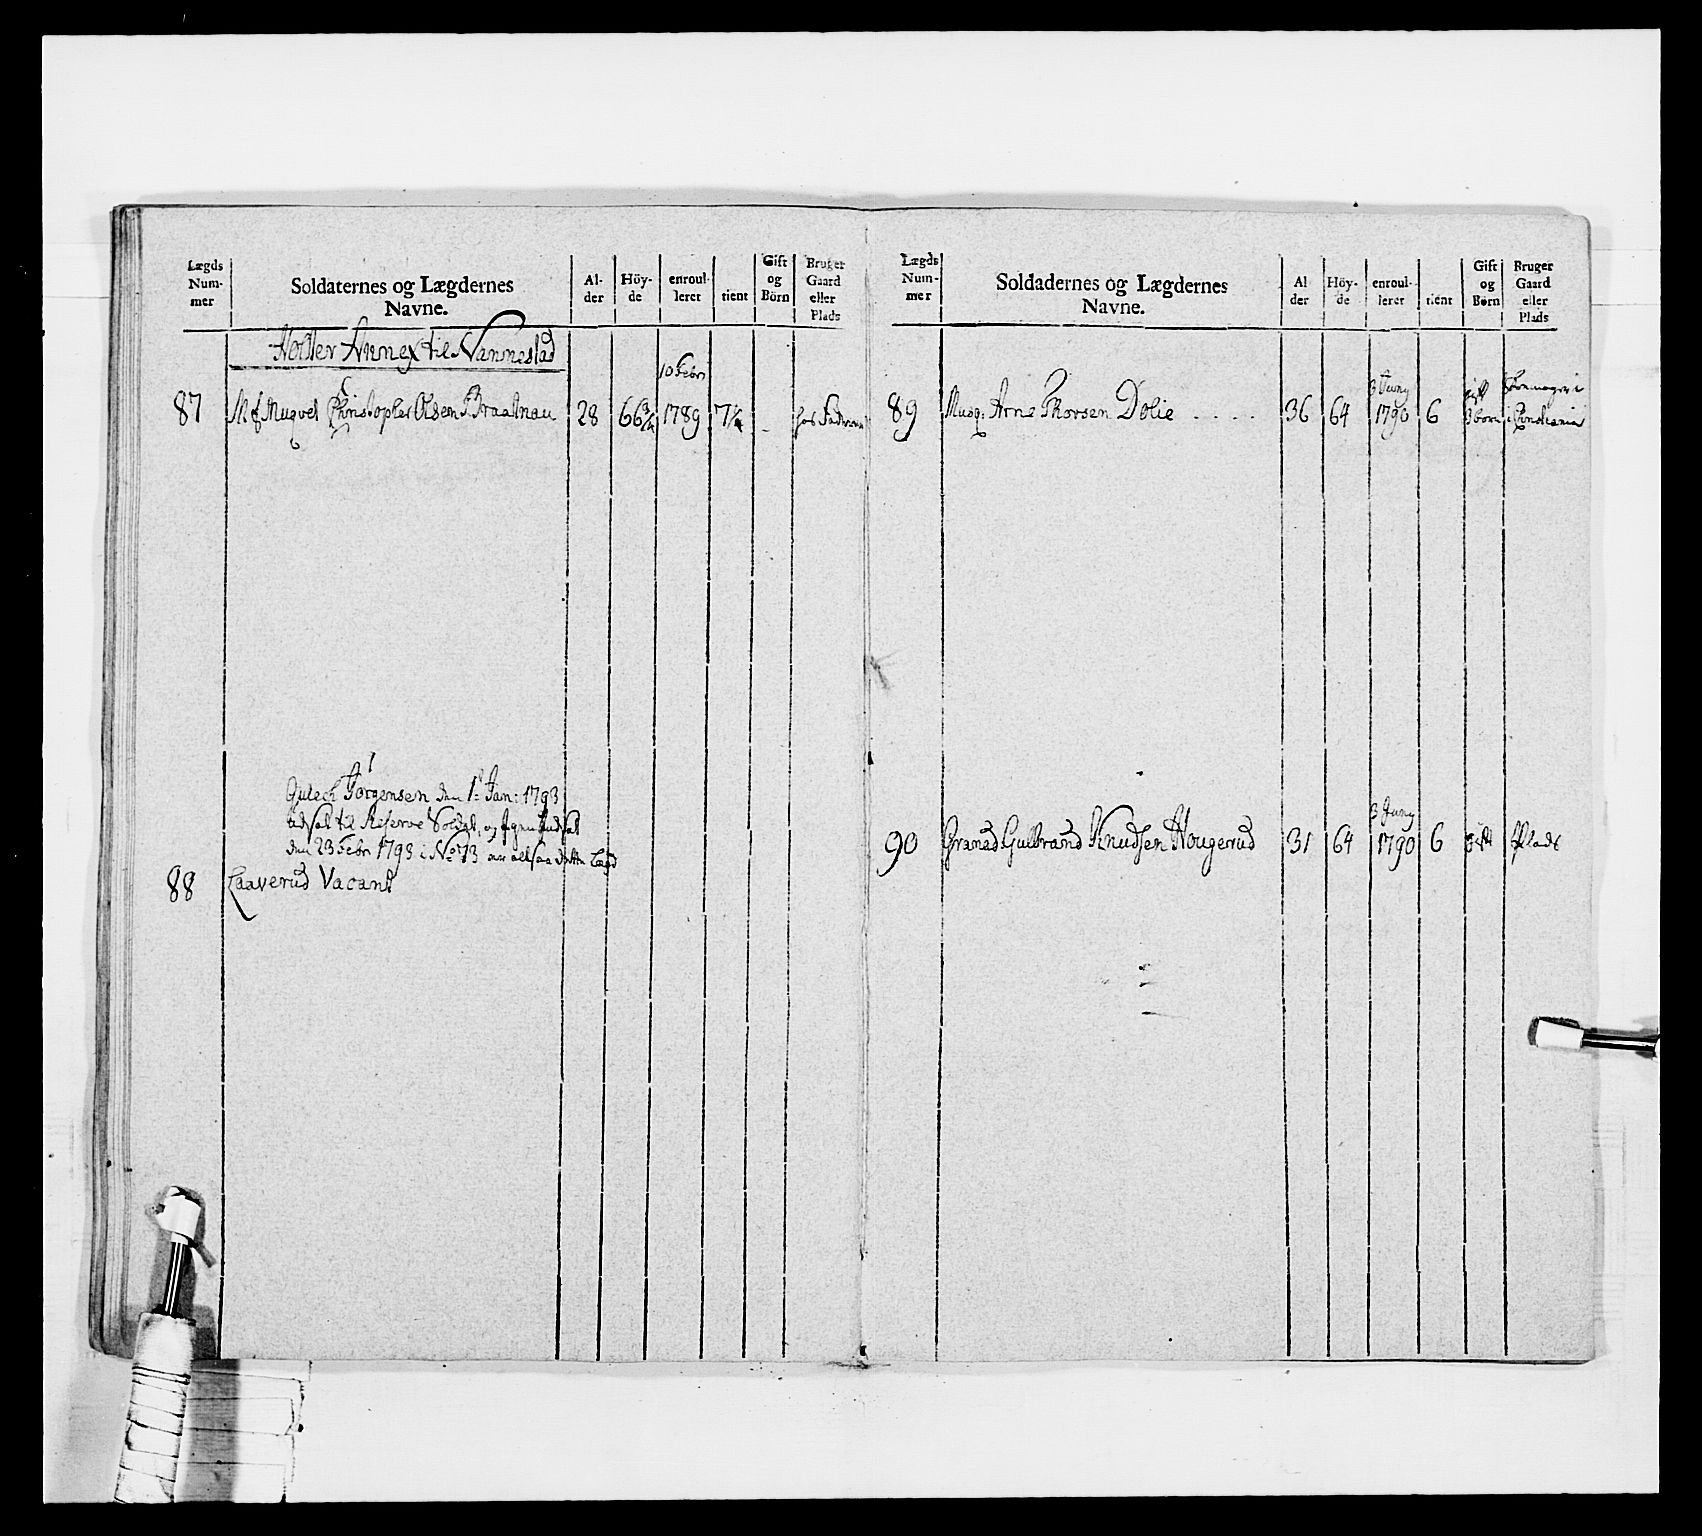 Lægds
Num-
mer
Soldaternes og Lægdernes
Navne.
Al-
der
Höy-
de
enroul-
leret
tient
Gift
og
Börn
Bruger
Gaard
eller
Plads
Holler Annex til Nannestad
10 Febr
87 Christopher Olsen Braatnau 28 66 3/4 1789 7 1/4
Jörgensen den 1t Jan: 1793
udsat til Reserve Soldat, og igen indsat
den 23 Febr 1793 i No 73 altsaa dette Lægd
88 Laaverud Vacant
Lægds
Num-
mer
Soldadernes og Lægdernes
Navne.
Al
der
Höy-
de
enroul-
leret
tient
Gift
og
Börn
Bruger
Gaard
eller
Plads
3 Juny gift
89 Musq: Arne Thorsen Dolie . . . . 36 64 1790 6 3 born i Christiania
3 Juny
90 Granad Gulbrand Knudsen Hougerud 31 64 1790 6 Gift Plads